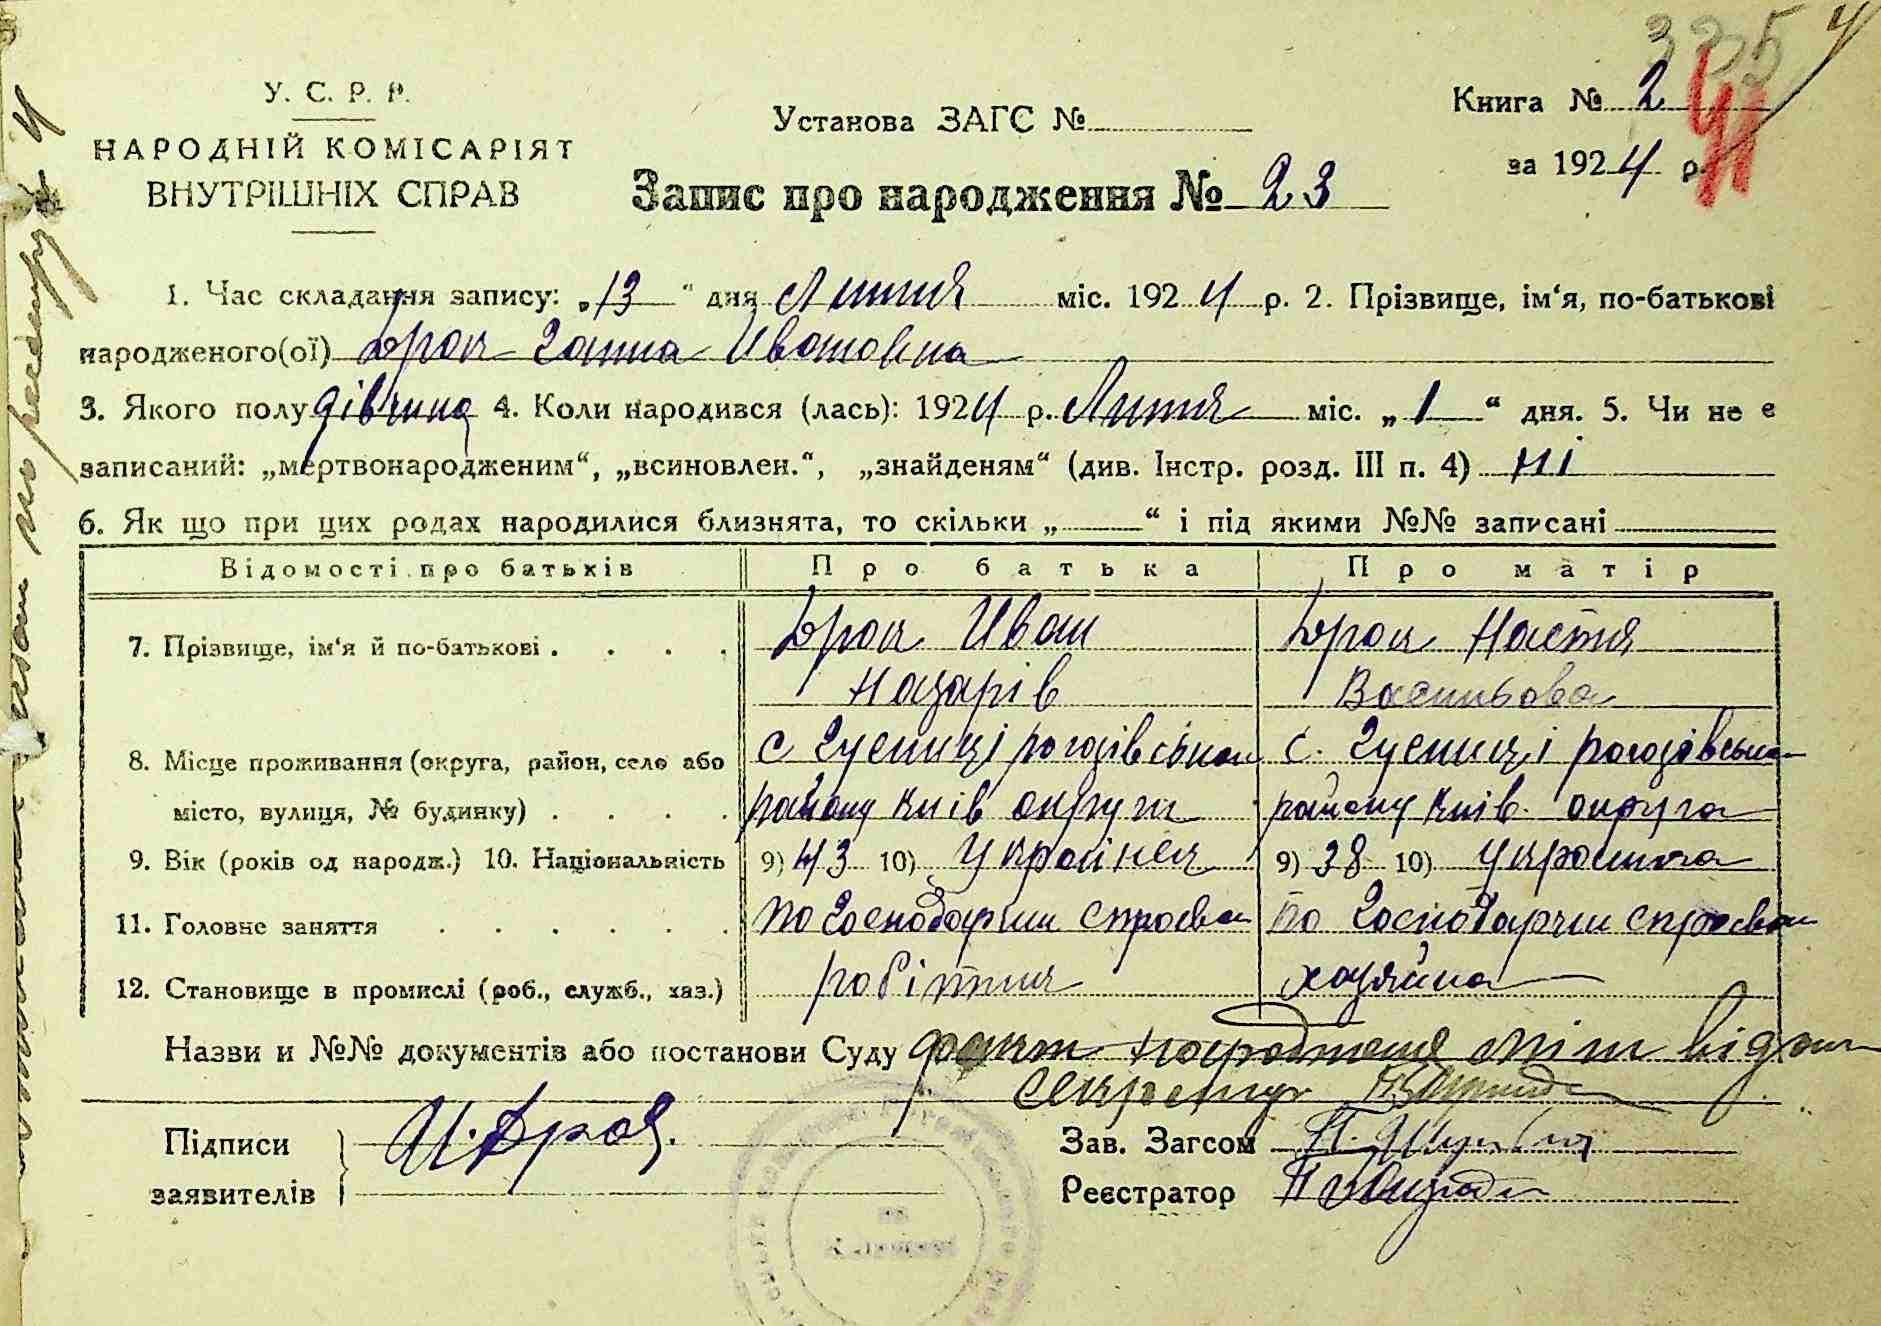 У. С. Р. Р.
НАРОДНІЙ КОМІСАРІЯТ
ВНУТРІШНІХ СПРАВ
Установа ЗАГС №
Книга № 2
за 1924 р.
Запис про народження № 23
1. Час складання запису: „13“ дня Липня міс. 1924 р. 2. Прізвище, ім‘я, по-батькові
народженого(ої) Ганна Ивановна
3. Якого полу дівчина 4. Коли народився (лась): 1924 р. Липня міс. „1“ дня. 5. Чи не є
записаний: „мертвонародженим“, „всиновлен.“, „знайденям“ (див. Інстр. розд. III п. 4) ні
6. Як що при цих родах народилися близнята, то скільки „ “ і під якими №№ записані
Відомості про батьків Про батька Про матір
7. Прізвище, ім‘я й по-батькові . . . . Иван Настя
Назарів Васильова
8. Місце проживання (округа, район, село або с Гусениці рогозівськои с. Гусениці рогозівськ
місто, вулиця, № будинку) . . . . району Київ округи району Київ. округа
9. Вік (років од народж.) 10. Національність 9) 43 10) Українец 9) 38 10) Украинка
11. Головне заняття . . . . . . по Господарчи справа по Господарчи справам
12. Становище в промислі (роб., служб., хаз.) робітник хозяйка
Назви и №№ документів або постанови Суду факт народженя
Секретар
Підписи
заявителів
Зав. Загсом
Реєстратор